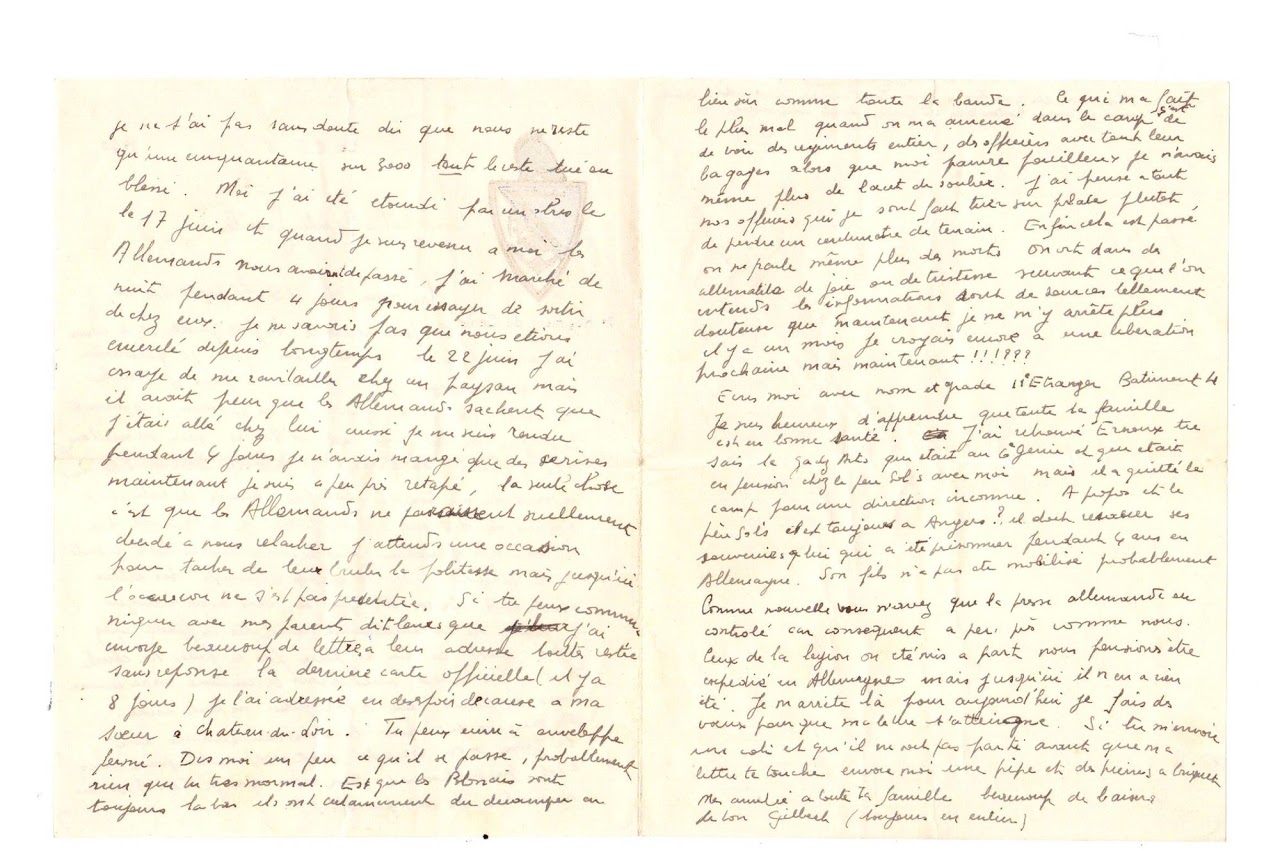 je ne t'ai pas sans doute dit que nous ne reste
qu'une cinquantaine sur 3000 tout le reste tué ou
blessé. Moi j'ai été etourdi par un obus le
le 17 juin et quand je suis revenu a moi les
Allemands nous avaient depassé, j'ai marché de
nuit pendant 4 jours pour essayer de sortir
de chez eux. je ne savais pas que nous etions
encerclé depuis longtemps le 22 juin j'ai
essaye de me ravitailler chez un paysan mais
il avait peur que les Allemands sachent que
j'etais allé chez lui aussi je me suis rendu
pendant 4 jours je n'avais mangé que des serises
maintenant je suis a peu près retapé, la seule chose
c'est que les Allemands ne paraissent nullement
decidé a nous relacher j'attends une occasion
pour tacher de leur bruler la politesse mais jusqu'ici
l'occasion ne s'est pas presentée. Si tu peux commu-
niquer avec mes parents dit leur que j'ai
envoyé beaucoup de lettre à leur adresse toutes restée
sans reponse la derniere carte officielle (il y a
8 jours) je l'ai adressée en desespoir de cause a ma
sœur à Chateau-du-Loir. Tu peux ecrire à enveloppe
fermé. Dis moi un peu ce qu'il se passe, probablement
rien que tu tres normal. Est que les Blonais sont
toujours la bas ils ont certainement du decamper ou
bien sûr comme toute la bande. Ce qui m'a fait
le plus mal quand on m'a amené dans le camp c'est de
de voir des regiments entier, des officiers avec tout leur
bagages alors que moi pauvre fouilleux je n'avais
même plus de lacet de soulier. J'ai pensé a tout
nos officiers qui se sont fait tuer sur place plutot
de perdre un centimetre de terrain. Enfin cela est passé
on ne parle même plus des morts On vit dans des
alternatils de joie ou de tristesse suivant ce que l'on
entends les informations sont de sources tellement
douteuse que maintenant je ne m'y arrête plus
il y a un mois je croyais encore a une liberation
prochaine mais maintenant !!!???
Ecris moi avec nom et grade 11e Etranger Batiment 4
Je suis heureux d'apprendre que toute ta famille
est en bonne santé. J'ai retrouvé Ernoux tu
sais le que etait au 6e Genie et que etait
en pension chez le père Sol's avec moi mais il a quitté le
camp pour une direction inconnue. A propos et le
père Sol's est toujours a Angers? il doit ses
souvenirs lui qui a été prisonnier pendant 4 ans en
Allemagne. Son fils n'a pas ete mobilisé probablement
Comme nouvelle vous n'avez que la presse allemande ou
controlé par consequent a peu près comme nous.
Ceux de la legion on été mis a part nous pensions être
expedié en Allemagne mais jusqu'ici il n'en a rien
été. Je m'arrête là pour aujourd'hui je fais des
vœux pour que ma lettre t'atteingne. Si tu m'envoie
un coli et qu'il ne soit pas parti avant que ma
lettre te touche envoie moi une pipe et des pierres a briquet
Mes amitié a toute ta famille beaucoup de baisers
de ton Gilbert (toujours en entier)